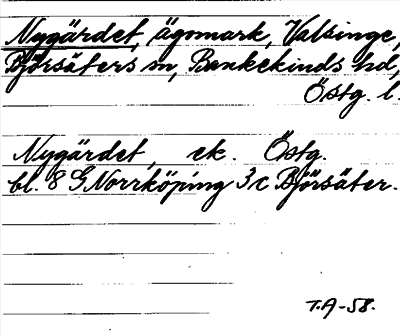 Nygärdet, ägomark, Valsinge,
Björsäters sn, Bankekinds hd,
Östg. l.
Nygärdet, ek. Östg.
bl. 8 G Norrköping 3c Björsäter.
T.A-58.